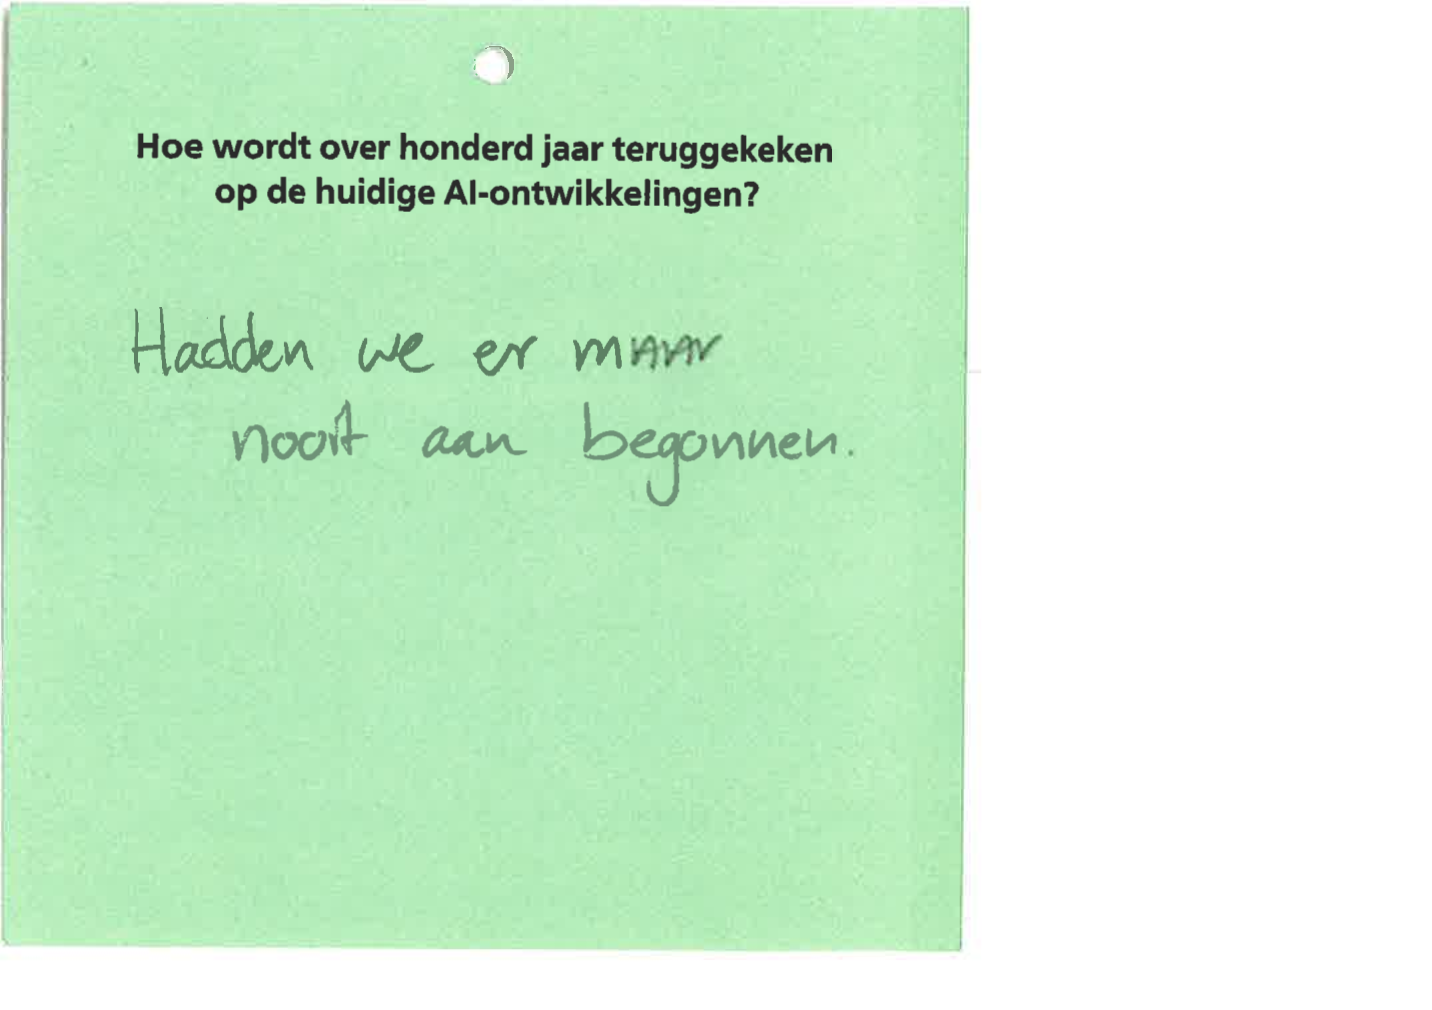 Hoe wordt over honderd jaar teruggekeken
op de huidige AI-ontwikkelingen?
Hadden we er maar
nooit aan begonnen.